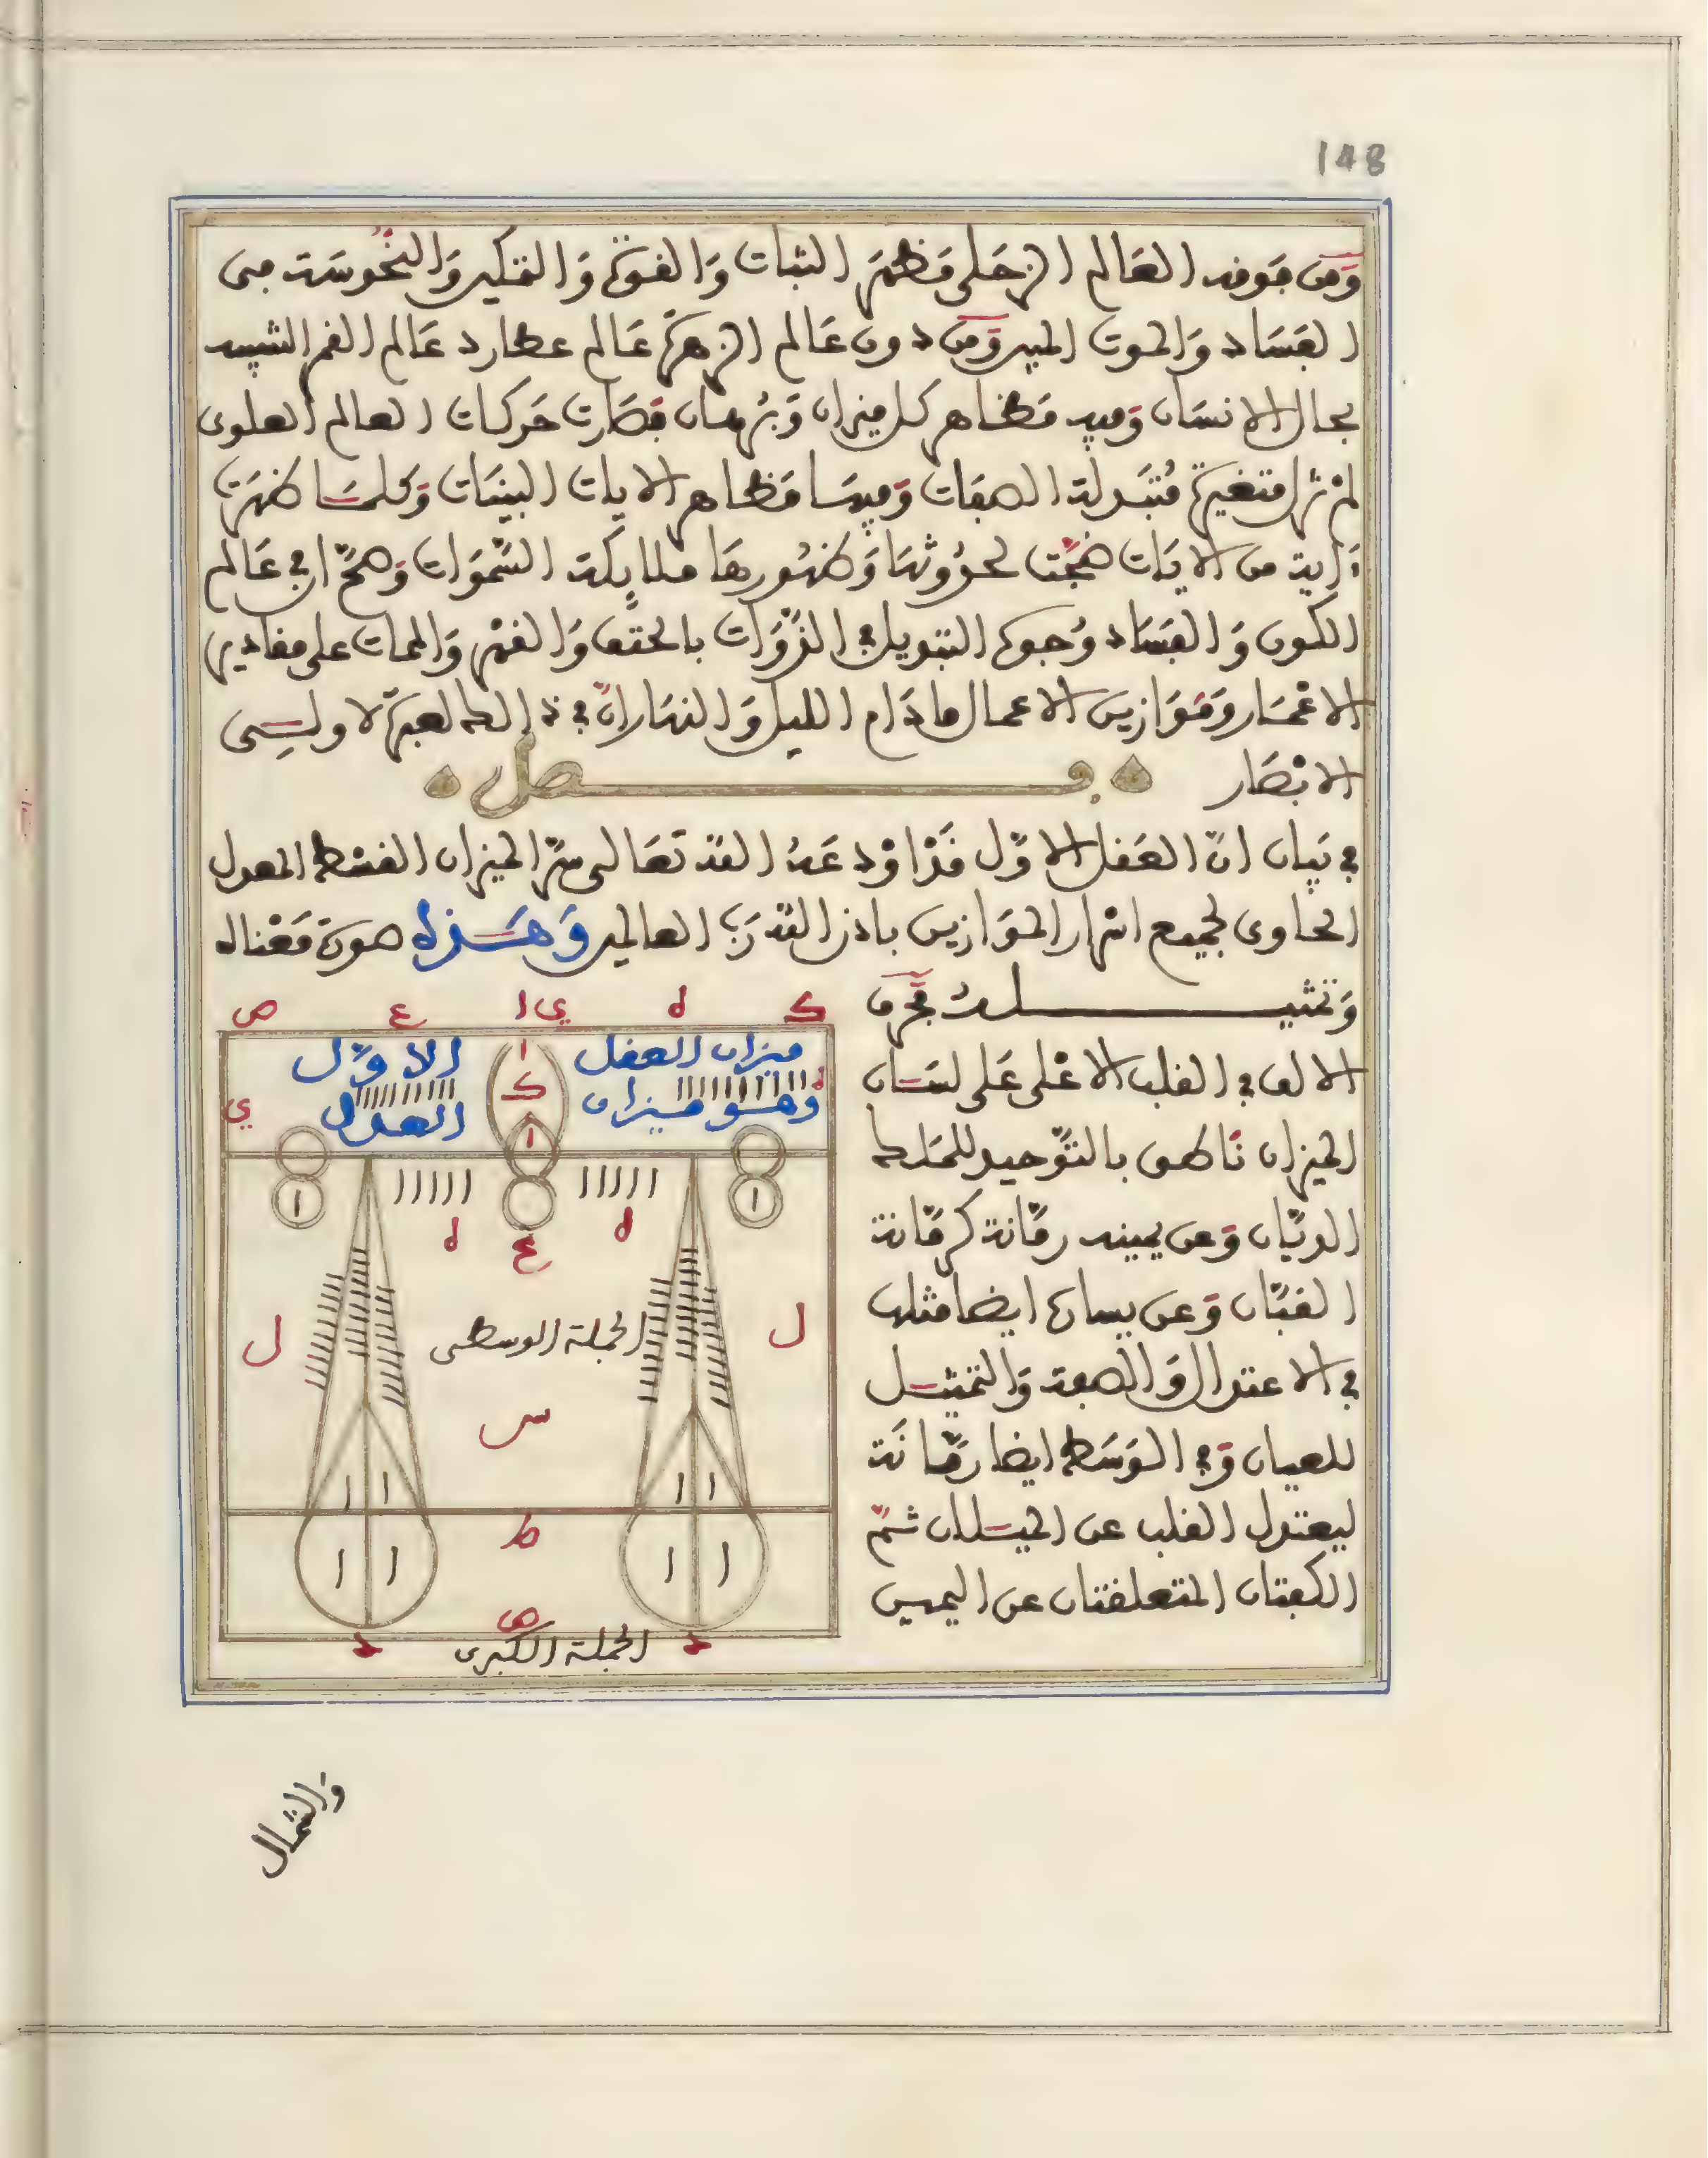 148
وَمِن فَوقه العَالم الزحَلي مَظهَر الثبات وَالقوة وَالتمكين وَالنحُوسَة من
الفَسَاد وَالموت المبير وَمن دون عَالم الزهرَة عَالم عطارد عَالم القمر الشبيه
بحال الانسَان وَفيه مَظاهر كل ميزان وَبرهان فصَارت حَركات العالم العلوى
لمْ تزل متغيرة مُتبَدلة الصفات وَفيهَا مَظاهر الايات البينَات وَكلمَا ظهرَت
ءَاية من الايَات ضجّت لحدُوثهَا وَظهُورهَا ملايكة السّموَات وَصحّ في عَالم
الكون وَالفسَاد وُجوه التبديل في الذّوَات بالحتف وَالقهْر وَالممات على مقادير
الاعْمَار وَمَوَازين الاعمال مادَام الليل وَالنهَار انّ في ذالك لعبرَة لاولى
الابْصَار
فصل
في بَيان انّ العَقل الاوّل قَدْ اوْدعَهُ الله تعَالى سرّ الميزان القسْط المعدل
الحاوى لجميع اسرار الموَازين باذن الله رَبّ العالمين وَهَذه صورَة مَعْناه
وَتمثيلهُ فحَرف
الالف في القلب الاعْلى عَلى لسَان
الميزان نَاطق بالتوّحيد للمَلك
الديّان وَعن يمينه رمّانة كرمّانة
القبّان وَعن يساره ايضا مثلها
في الاعتدال وَالصفة وَالتمثيل
للعيان وَفي الوَسَط ايضا رمّانَة
ليعتدل القلب عن الميلان ثمّ
الكفتان المتعلقتان عن اليمين
ص ع ا ي ه ك
ميزان العقل الاوّل
وهو ميزان العدل
ا ك ا
ي ه
ا ا
ه ع ه
ل ل
الجملة الوسطى
س
ا ا ا ا
ط
ا ا ا ا
ص
الجملة الكبرى
وَالشمال